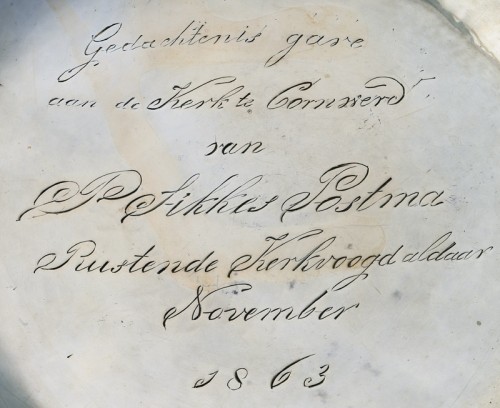 Gedachtenis gave
aan de Kerk te Cornwerd
van
P. Sikkes Postma
Rustende Kerkvoogd aldaar
November
1863